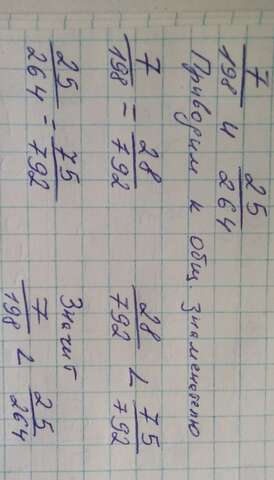 7/198 и 25/264
Приводим к общ знаменателю
7/198 = 28/792
28/792 < 75/792
25/264 = 75/792
Значит
7/198 < 25/264